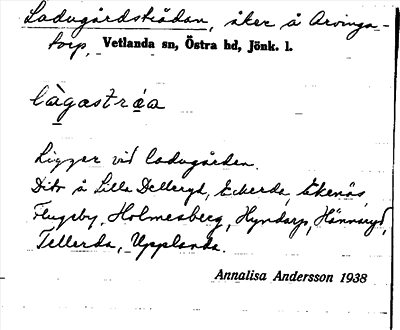 Ladugårdstrådan, åker å Arvinga-
torp, Vetlanda sn, Östra hd, Jönk. l.
làgastráa
Ligger vid ladugården.
Dito å Lilla Delleryd, Eckerda, Ekenäs,
Flugeby, Holmesberg, Hyndarp, Hönnaryd,
Tellerda, Upplanda.
Annalisa Andersson 1938